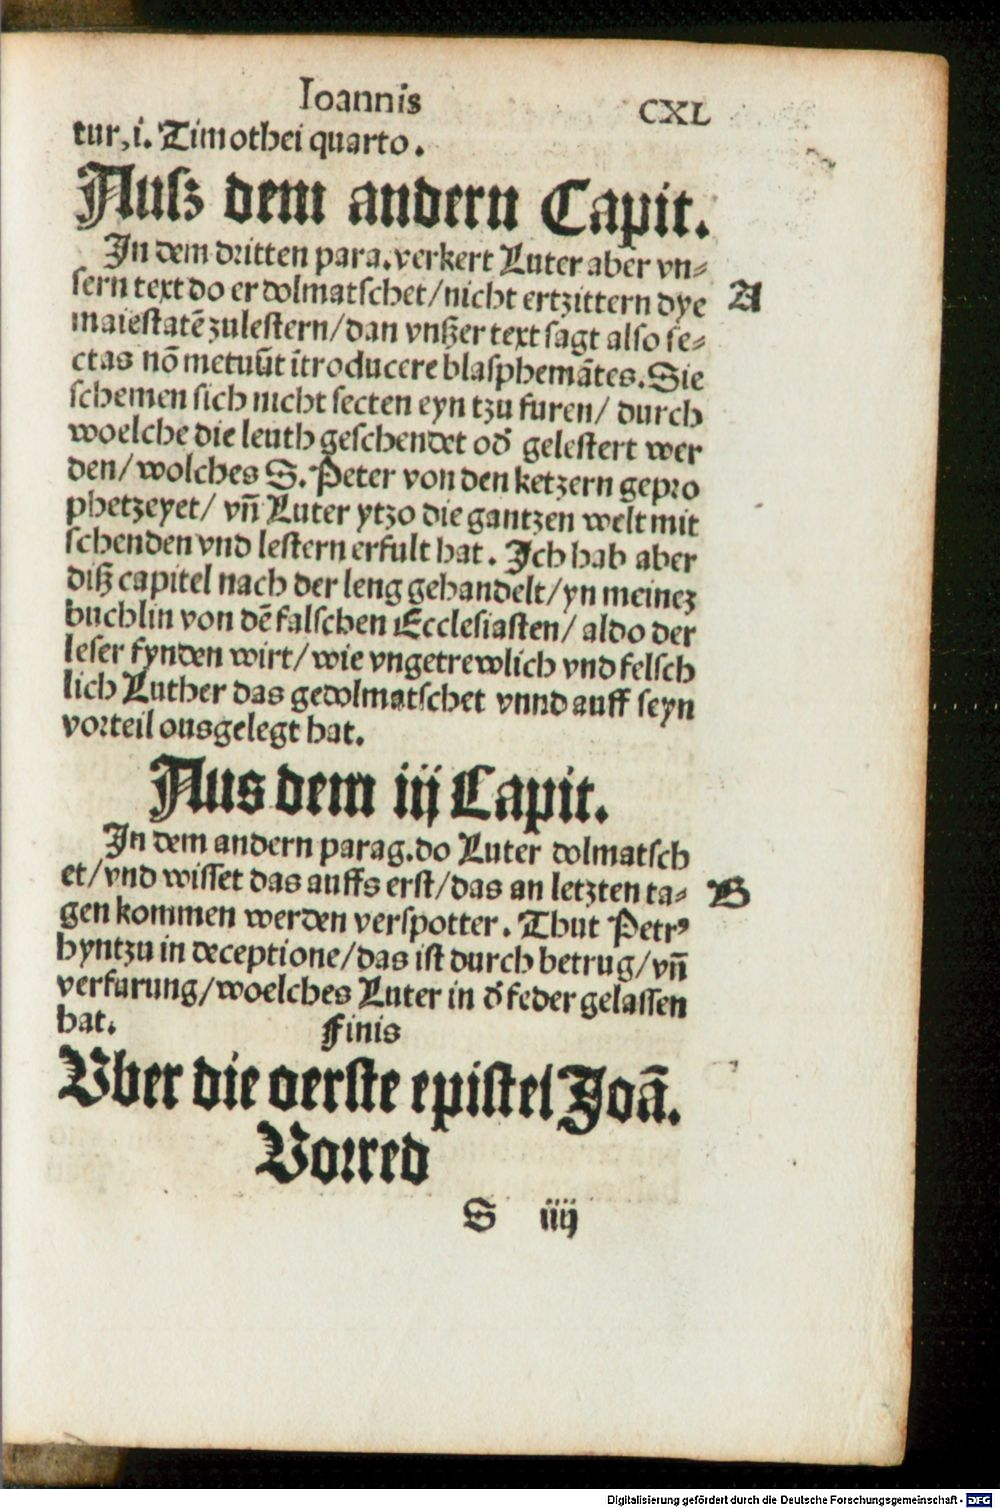 Ioannis CXL
tur, i. Timothei quarto.
Ausz dem andern Capit.
In dem dritten para. verkert Luter aber vn⸗
sern text do er dolmatschet/ nicht ertzittern dye A
maiestatē zulestern/ dan vnßer text sagt also se⸗
ctas nō metuūt ītroducere blasphemātes. Sie
schemen sich nicht secten eyn tzu furen/ durch
woelche die leuth geschendet od̕ gelestert wer
den/ wolches S. Peter von den ketzern gepro
phetzeyet/ vñ Luter ytzo die gantzen welt mit
schenden vnd lestern erfult hat. Ich hab aber
diß capitel nach der leng gehandelt/ yn meinez
buchlin von dē falschen Ecclesiasten/ aldo der
leser fynden wirt/ wie vngetrewlich vnd felsch
lich Luther das gedolmatschet vnnd auff seyn
vorteil ousgelegt hat.
Aus dem iij Capit.
In dem andern parag. do Luter dolmatsch
et/ vnd wisset das auffs erst/ das an letzten ta⸗ B
gen kommen werden verspotter. Thut Petrꝰ
hyntzu in deceptione/ das ist durch betrug/ vñ
verfurung/ woelches Luter in d̕ feder gelassen
hat. Finis
Vber die oerste epistel Joā.
Vorred
S iiij
Digitalisierung gefördert durch die Deutsche Forschungsgemeinschaft - DFG